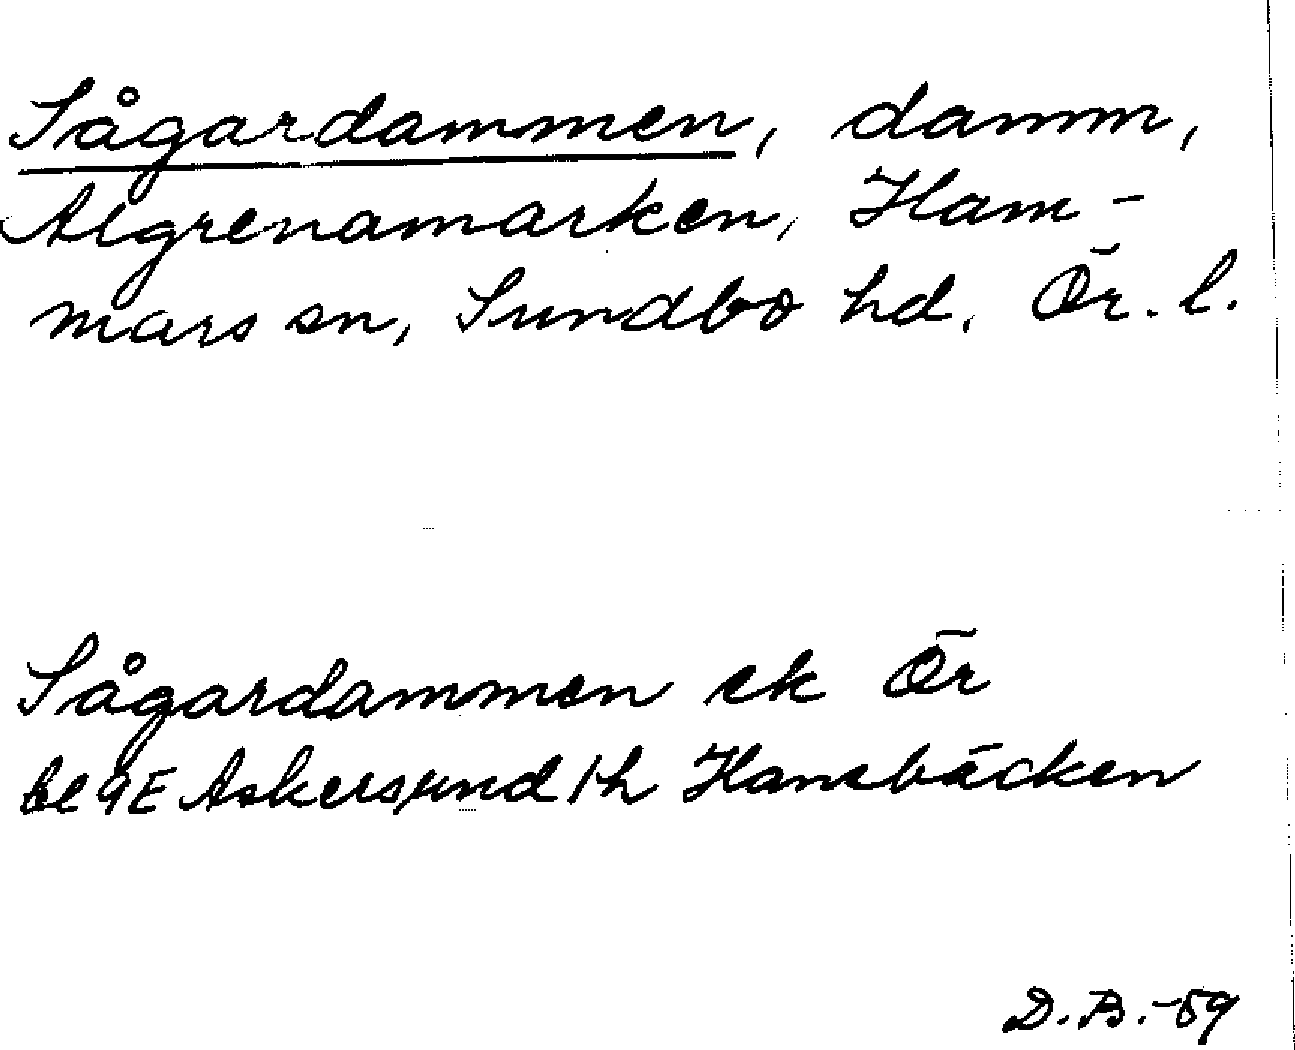 Sågardammen, damm,
Algrenamarken, Ham-
mars sn, Sundbo hd, Ör. l.
Sågardammen ek Ör
bl 9E Askersund 1h Hansbäcken
D.B.-59